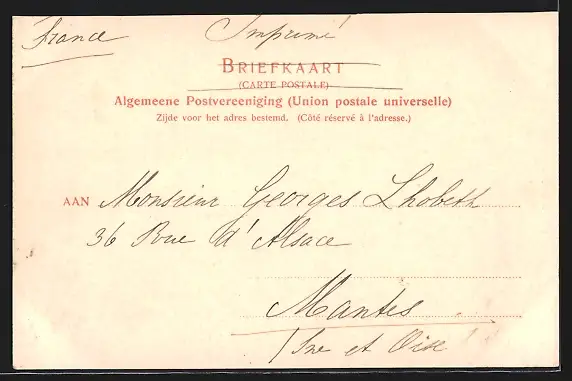 France Imprimé
BRIEFKAART
(CARTE POSTALE)
Algemeene Postvereeniging (Union postale universelle)
Zijde voor het adres bestemd. (Côté réservé à l'adresse.)
AAN Monsieur Georges Lhobeth
36 Rue d'Alsace
Mantes
/ Sne et Oise